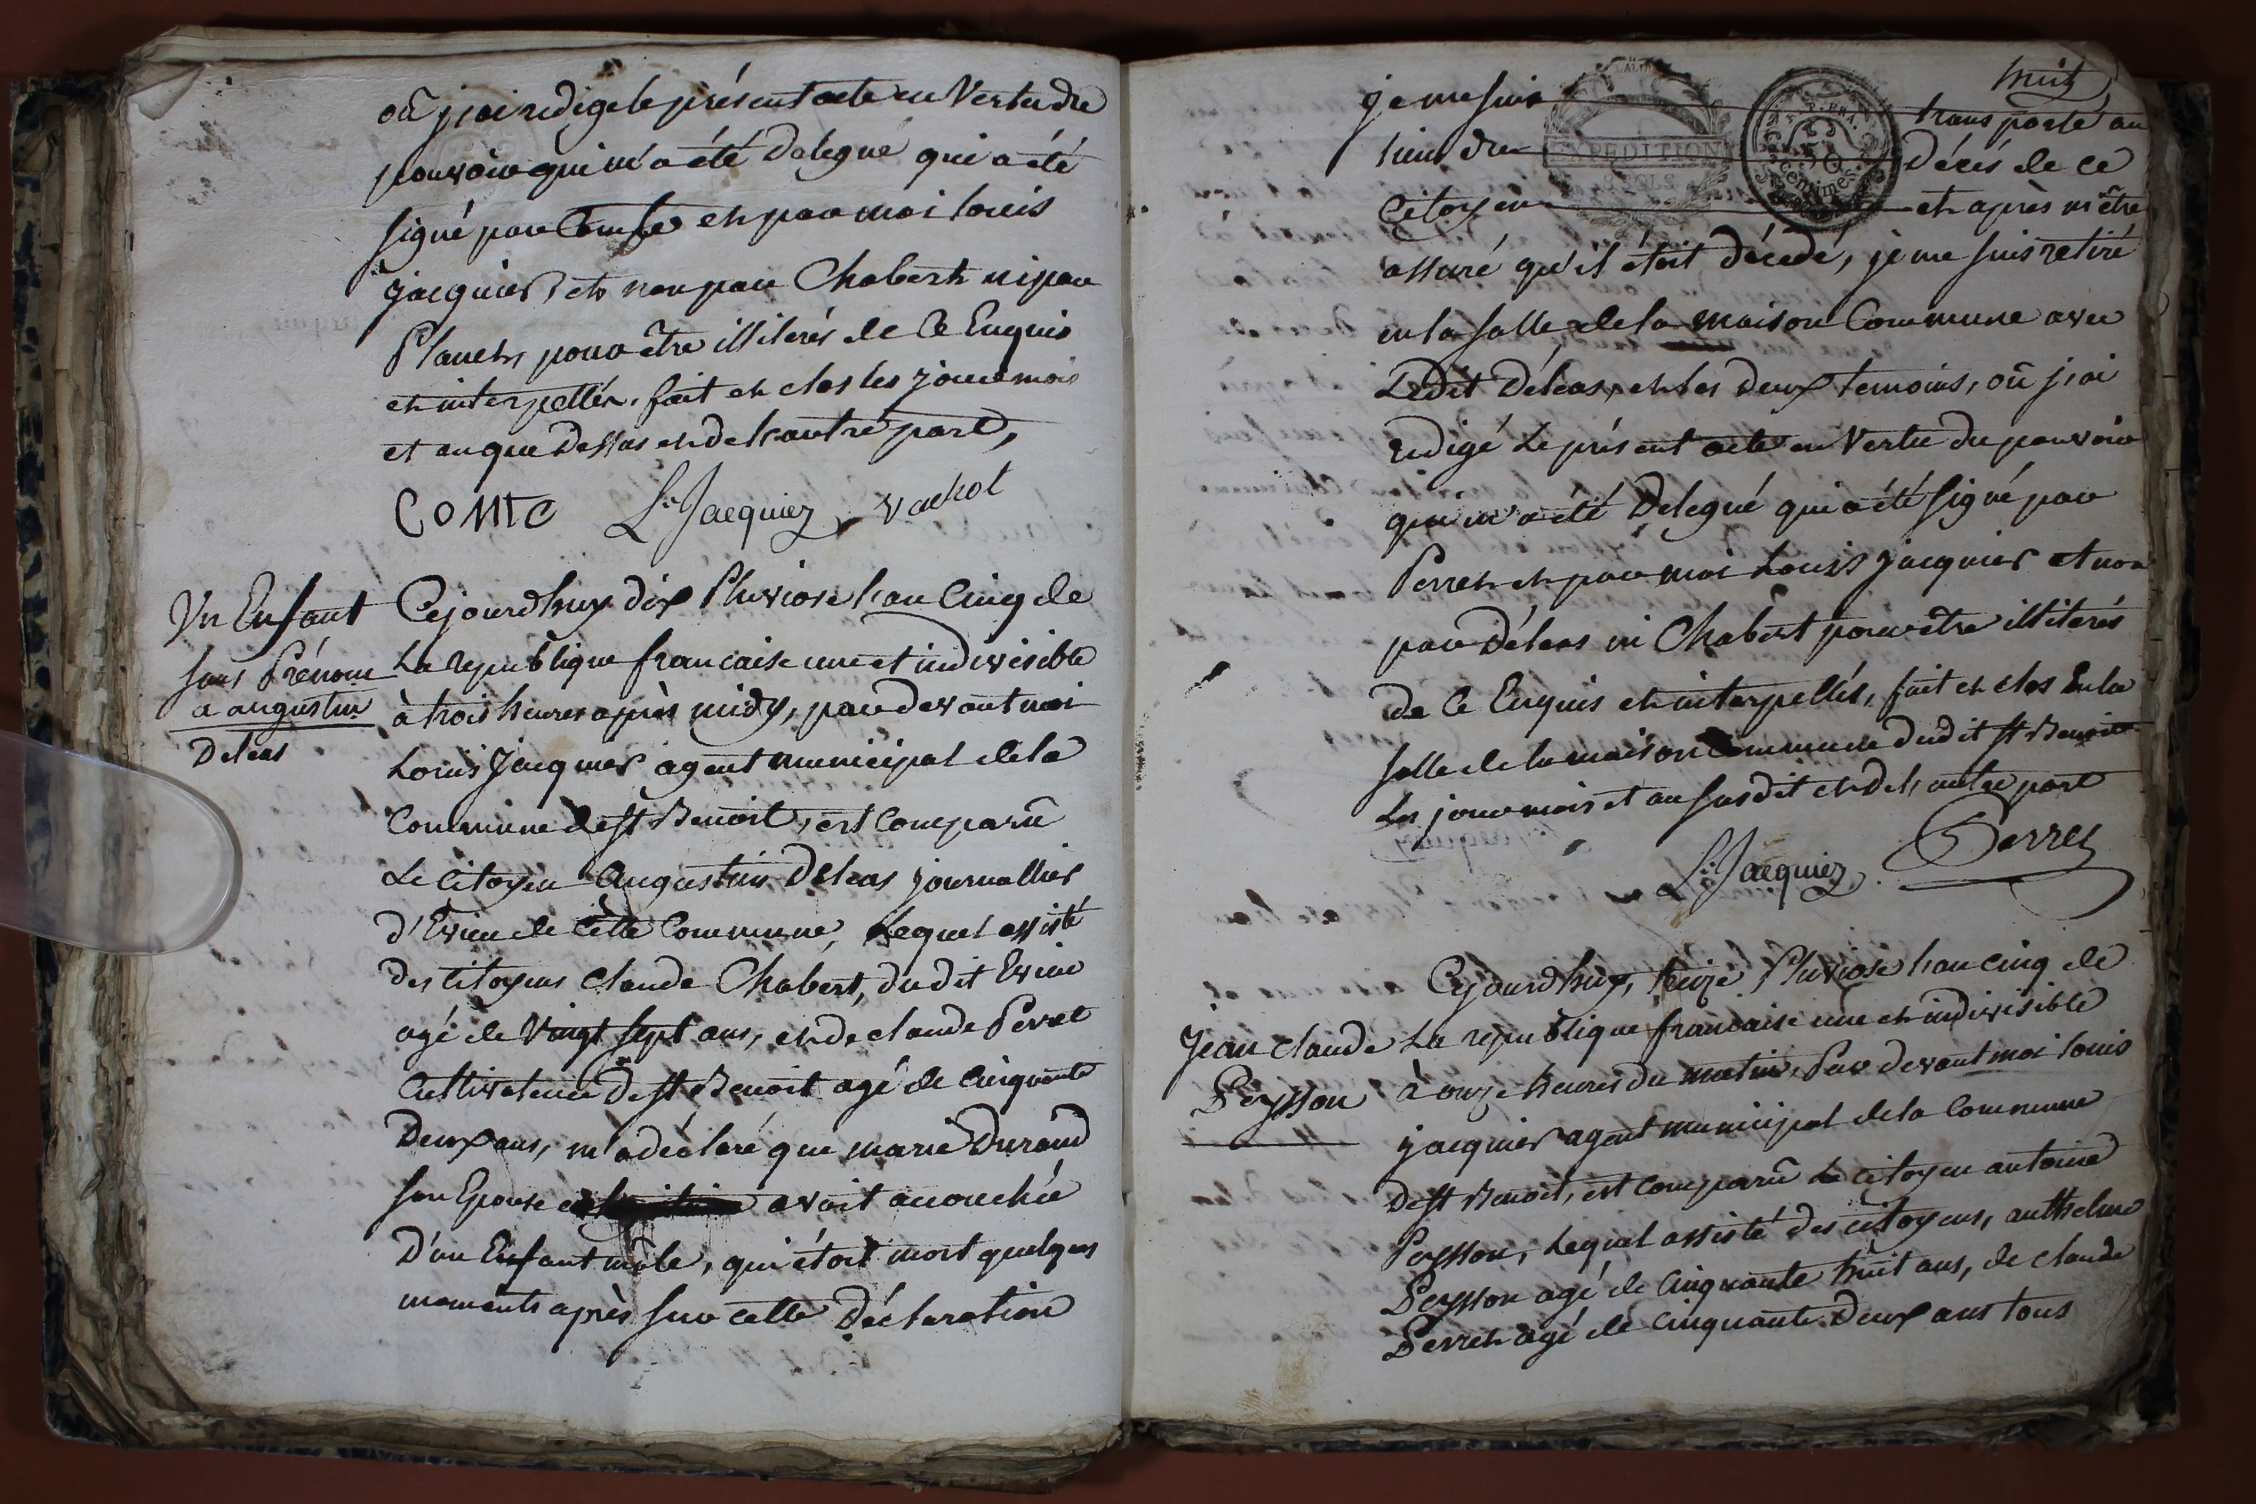 où j'ai redigé le présent acte en Vertu du
pouvoir qui m'a été delegué qui a été
signé par Comte et par moi louis
jacquier, et non par Chabert ni par
Planet, pour être illiterés de Ce Enquis
et interpellés. fait et clos les jour mois
et an que dessus et de l'autre part,
COMTE L. Jacquier vachot
Un Enfant
sans Prénom
a augustin
Deleas
Cejourd'huy dix Pluviose l'an Cinq de
La republique francaise une et indivisible
à trois heures après midy, par devant moi
Louis Jacquier agent municipal de la
Commune de st Benoit, est Comparû
Le citoyen Augustin Deleas journallier
d'Evieu de cette Commune, Lequel assisté
des citoyens claude Chabert, dudit Evieu
agé de Vingt sept ans, et de claude Perret
Cultivateur de st Benoit agé de Cinquante
Deux ans, m'a déclaré que marie Durand
son Epouse avoit accouchée
D'un Enfant mâle, qui étoit mort quelques
moments après sur cette Déclaration
huit
je me suis transporté au
lieu du Décés de ce
Citoyen et après m'être
assuré qu'il étoit décedé, je me suis retiré
en la salle de la maison Commune avec
Ledit Déleas, et les deux temoins, où j'ai
redigé Le présent acte en Vertu du pouvoir
qui m'a été Delegué qui a été signé par
Perret et par moi Louis Jacquier et non
par Déleas ni Chabert pour être illiterés
de Ce Enquis et interpellés, fait et clos En la
salle de la maison Commune dudit st Benoit
Les jour mois et an susdit et de l'autre part
L. Jacquier Perret
EXPEDITION
50
centimes
Jean claude
Peysson
Cejourd'huy, seize Pluviose l'an cinq de
La republique francaise une et indivisible
à onze heures du matin, Par devant moi louis
jacquier agent municipal de la Commune
de st Benoit, est comparû Le citoyen antoine
Peysson, Lequel assisté des citoyens, anthelme
Peysson agé de Cinquante huit ans, de claude
Perret agé de Cinquante Deux ans tous